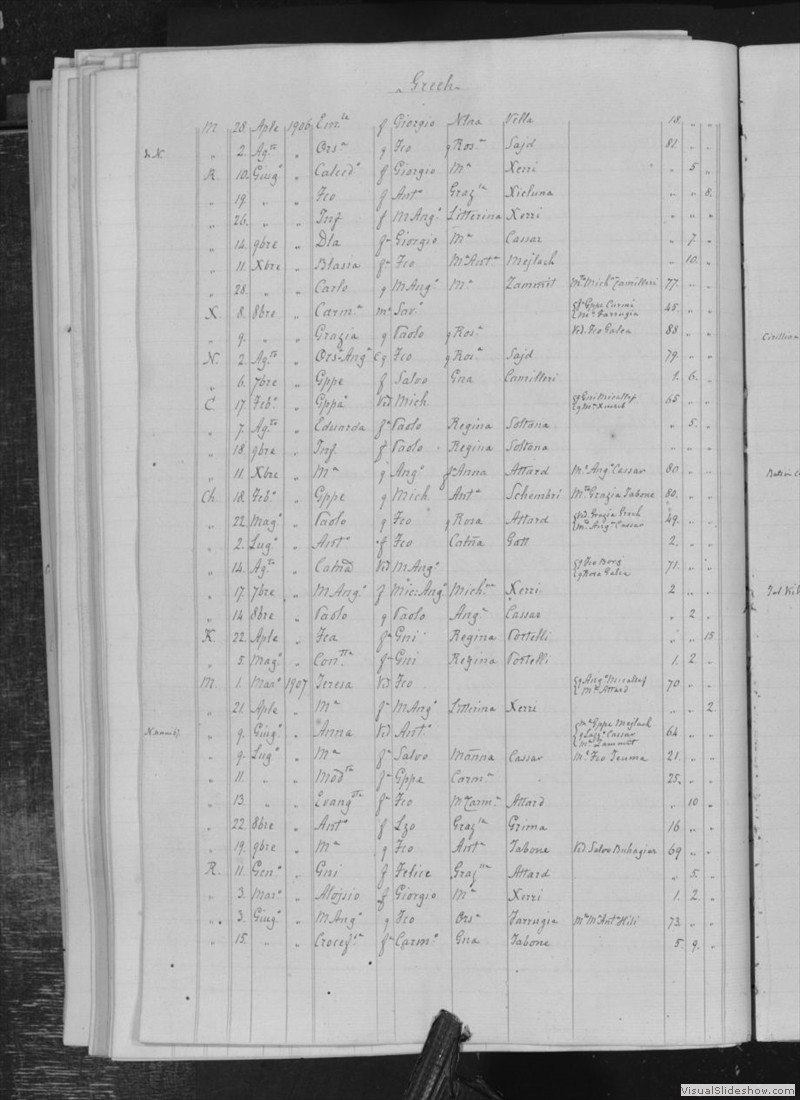 Grech
M. 28. Aple 1906 Em.la f Giorgio Ntna Vella 18. " "
" 2. Ag.to " Ors.a q Fco q Ros.a Sajd 81. " "
R. 10. Giug.o " Calced.o f Giorgio M.a Xerri " 5 "
" 19. " " Fco f Ant.o Graz.la Xicluna " " 8.
" 26. " " Inf. f M Ang.o Litterina Xerri " " "
" 14. 9bre " Dta f.a Giorgio M.a Cassar " 7. "
" 11. Xbre " Blasia f.a Fco M.a Ant.a Mejlach " 10. "
" 28. " " Carlo q M Ang.o M.a Zammit M.to Mich.a Camilleri 77. " "
X. 8. 8bre " Carm.a m.e Sav.o q Gppe Curmi 45. " "
m.a Farrugia
" 9. " " Grazia q Paolo q Ros.a Vid. Fco Galea 88 " "
N. 2. Ag.to " Ors.a Ang.a q Fco q Ros.a Sajd 79. " "
" 6. 7bre " Gppe f Salvo Gna Camilleri 1. 6. "
C. 17. Feb.o " Gppa Vid Mich. q Gni Micallef 65 " "
" 7. Ag.to " Eduarda f.a Paolo Regina Soltana " 5. "
" 18. 9bre " Inf. f Paolo Regina Soltana " " "
" 11. Xbre " M.a q Ang.o f.a Anna Attard M.e Ang.o Cassar 80 " "
Ch. 18. Feb.o " Gppe q Mich. Ant.a Schembri M.to Grazia Tabone 80. " "
" 22. Mag.o " Paolo q Fco q Rosa Attard Vid. Grazia Grech 49. " "
M.to Ang.a Cassar
" 2. Lug.o " Ant.o f Fco Catña Gatt 2. " "
" 14. Ag.to " Catña Vid M Ang.o q Fco Borg 71. " "
q Rosa Galea
" 17. 7bre " M Ang.o f Mic: Ang.o Mich.na Xerri 2 " "
" 14 8bre " Paolo q Paolo Ang.a Cassar " 2 "
K. 22. Aple " Fca f.a Gni Regina Portelli " " 15
" 5. Mag.o " Con.tta f.a Gni Regina Portelli 1. 2. "
M. 1. Mar.o 1907 Teresa Vid Fco q Ang.o Micallef 70 " "
M.a Attard
" 21. Aple " M.a f.a M Ang.o Litterina Xerri " " 2.
" 9. Giug.o " Anna Vid Ant.o m.e Gppe Mejlach 64 " "
q Laz.o Cassar
m.a Zammit
" 9. Lug.o " M.a f.a Salvo Mañna Cassar M.e Fco Teuma 21. " "
" 11. " " Mod.ta f.a Gppe Carm.a 25. " "
" 13. " " Evang.sta f.a Fco M Carm.a Attard " 10 "
" 22. 8bre " Ant.o f Lzo Graz.la Grima 16 " "
" 19. 9bre " M.a q Fco Ant.a Tabone Vid. Salvo Buhagiar 69 " "
R. 11. Gen.o " Gni f Felice Graz.lla Attard " 5. "
" 3. Mar.o " Alojsio f Giorgio M.a Xerri 1. 2. "
" 3. Giug.o " M Ang.o q Fco Ors.a Farrugia M.to M.a Ant.a Hili 73. " "
" 15. " " Crocef.sa f.a Carm.o Gna Tabone 5 9. "
VisualSlideshow.com